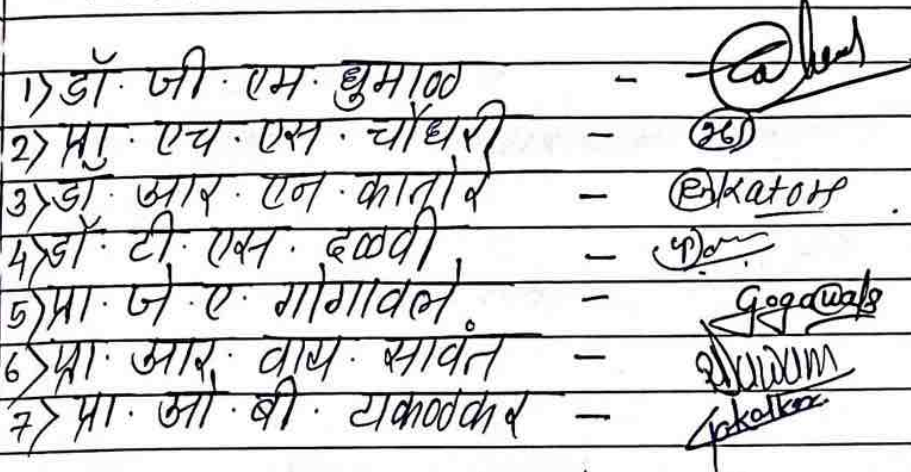 1) डॉ. जी. एम. धुमाळ -
2) प्रा. एच. एस. चौधरी -
3) डॉ. आर. एन. कातोरे - RnKatore
4) डॉ. टी. एस. दळवी -
5) प्रा. जे. ए. गोगावले - Gogawale
6) प्रा. आर. वाय. सावंत -
7) प्रा. ओ. बी. टाकळकर -